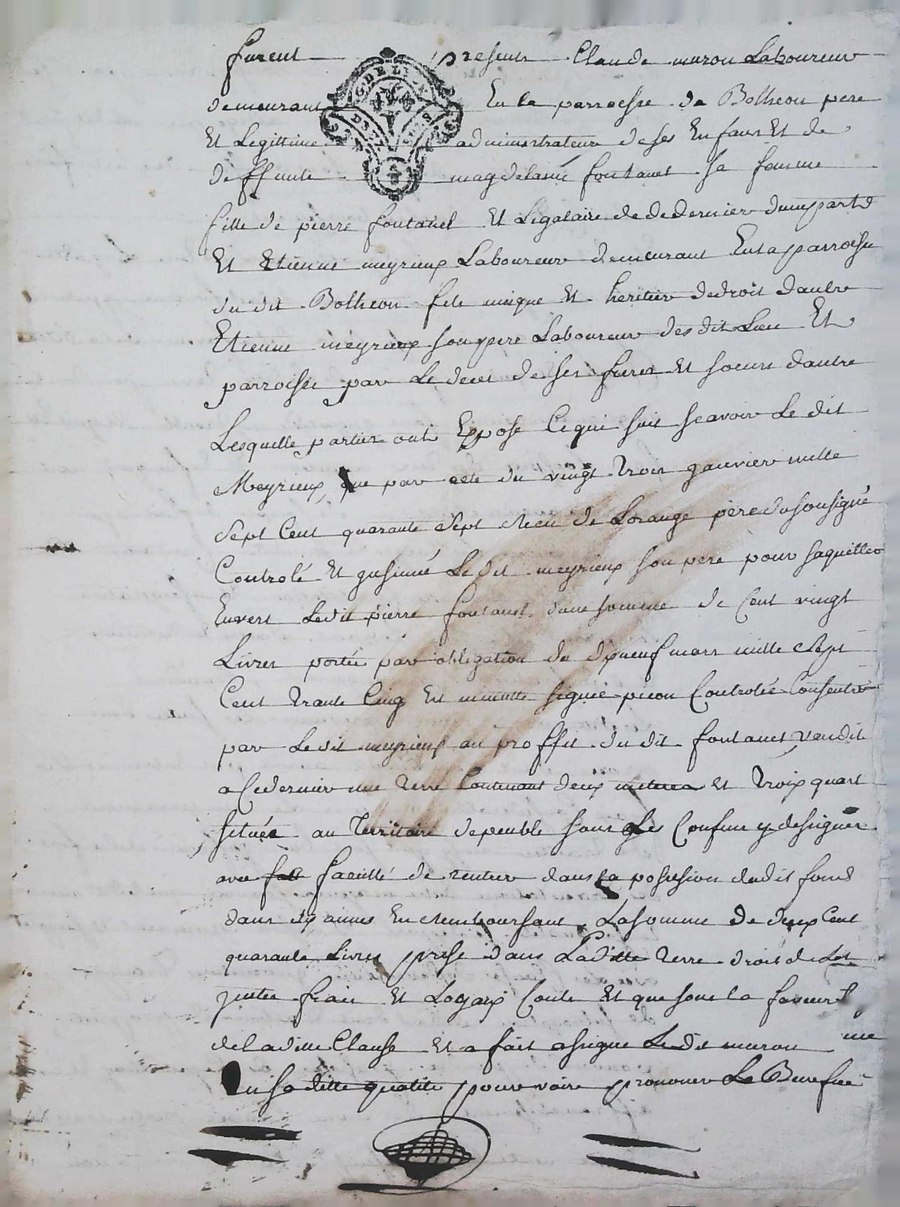 furent presents Claude muron Laboureur
G. DE LYON
DEUX SOLS
demeurant En la parroisse de Botheon pere
Et Legittime administrateur de ses Enfans Et de
deffunte magdelaine fontanel sa femme
fille de pierre fontanel Et Légataire de dernier d'une part
Et Etienne meyrieux Laboureur demeurant En la parroisse
du dit Botheon fils unique Et heritier de droit d'autre
Etienne meyrieux son pere Laboureur des dit Lieu Et
parroisse par Le deces de ses freres Et soeurs d'autre
Lesquelle parties ont Exposé Ce qui suit scavoir Le dit
Meyrieux que par acte du vingt trois janvier mille
sept Cent quarante sept Recu de Lorange pere du sousigné
Controlé Et insinué Le dit meyrieux son pere pour saquitter
Envert Ledit pierre fontanel d'une somme de Cent vingt
Livres portée par obligation du dixneuf mars mille sept
Cent trante Cinq signée picon Controlée Consentie
par Ledit meyrieux au proffit du dit fontanel vendit
a Ce dernier une terre Contenant deux Et troix quart
située au Territoire sous Les Confins y designer
avec faculté de rentrer dans la posession dudit fond
dans six années En Remboursant La somme de deux Cent
quarante Livres prise dans Laditte terre droit de
frais Et Loyaux Conts Et que sous la faveur
de laditte Clause Et a fait asigné Le dit muron
En sa ditte qualité pour voire prononcer Le Benefice